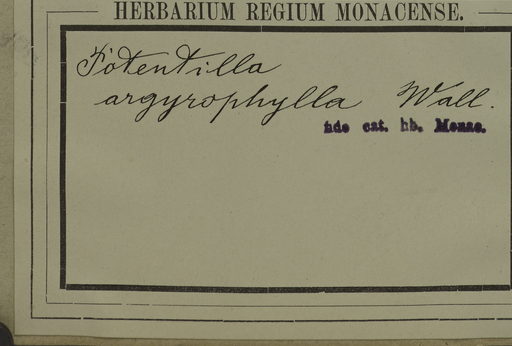 HERBARIUM REGIUM MONACENSE.
Potentilla
argyrophylla Wall.
fide cat. hb. Monac.